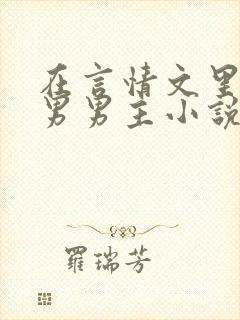 在言情文里
男男主小説
羅瑞芳